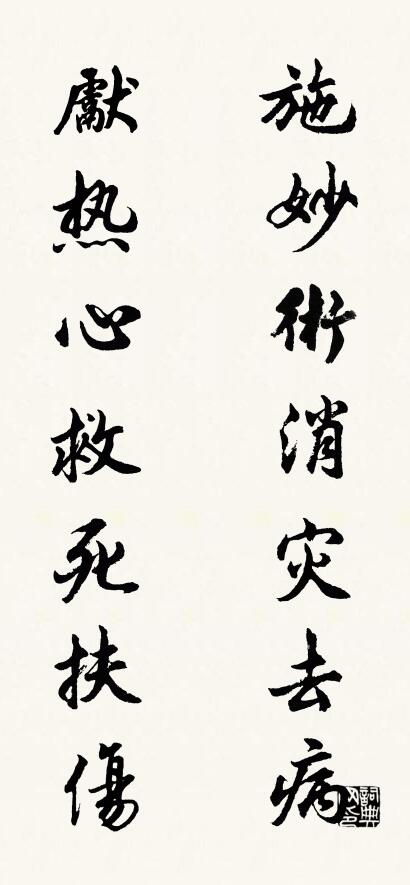 施妙術消灾去病
獻热心救死扶傷